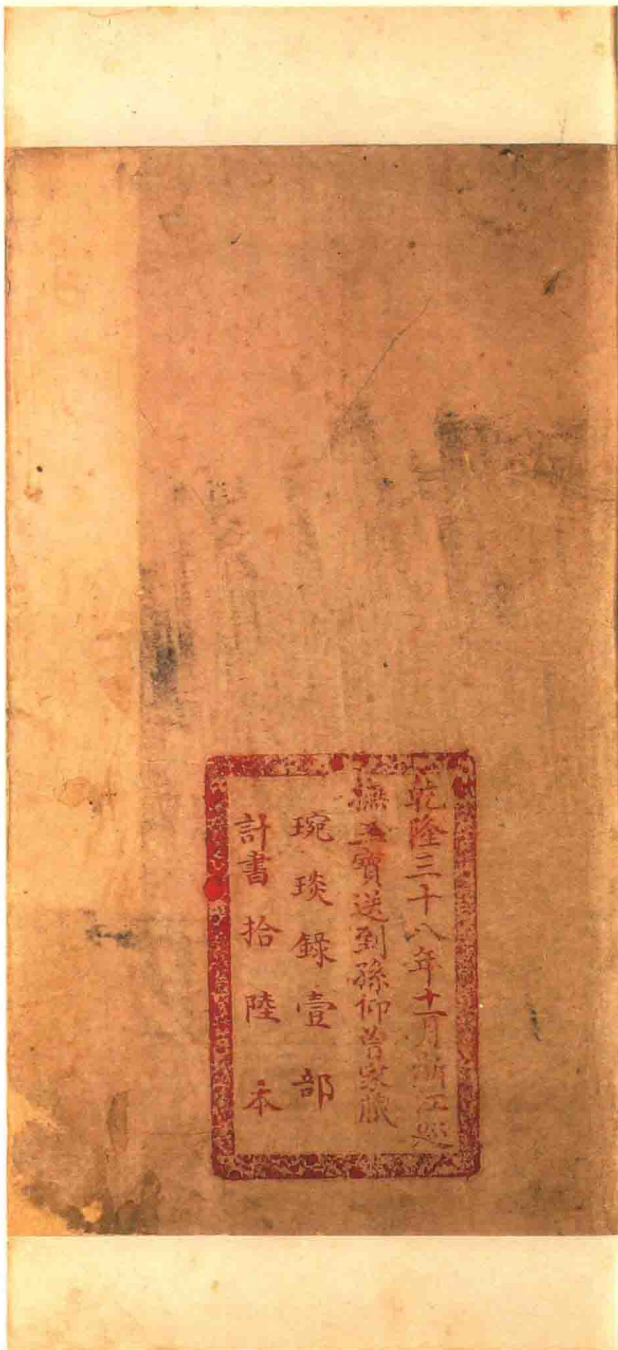 乾隆三十八年十一月浙江巡
撫三寶送到孫仰曾家藏
琬琰錄壹部
計書拾陸本